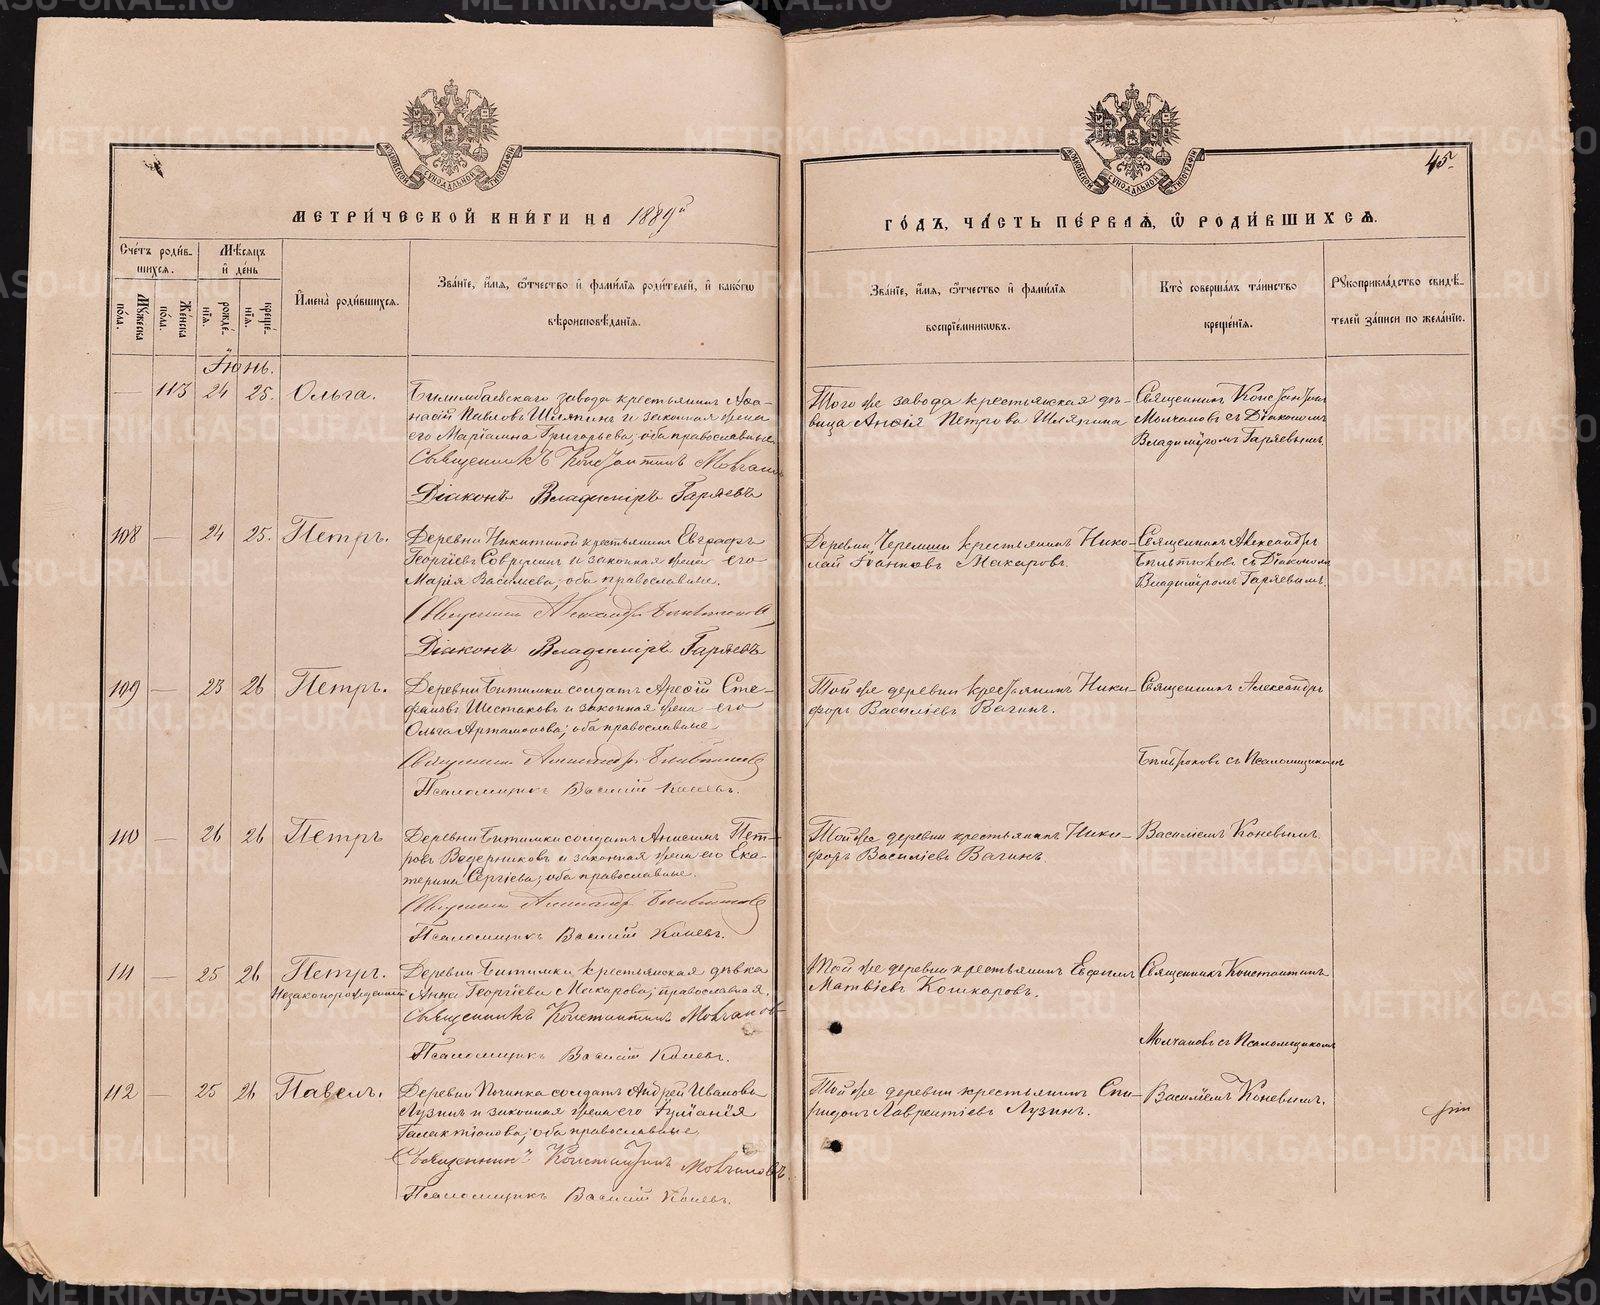 МЕТРИ́ЧЕСКОЙ КНИ́ГИ НА 1889й
Сче́тъ роди́вшихся.
Мужеска по́ла.
Же́нска по́ла.
Мѣ́сяцъ и҆ де́нь
рожде́нїя.
креще́нїя.
И҆мена̀ роди́вшихся.
Зва́нїе, и҆́мя, ѻ҆́тчество и҆ фамі́лїя роди́телей, и҆ како́гѡ
вѣроисповѣ́данїя.
Іюнь.
— 113 24 25. Ольга.
Билимбаевскаго завода крестьянинъ Афа-
насій Павловъ Шляпинъ и законная жена
его Маріанна Григорьева; оба православные.
Священникъ Константинъ Молчановъ
Діаконъ Владиміръ Гаряевъ
108 — 24 25. Петръ.
Деревни Никитиной крестьянинъ Евграфъ
Георгіевъ и законная жена его
Марія Васильева; оба православные.
Священникъ Александръ
Діаконъ Владиміръ Гаряевъ
109 — 23 26 Петръ.
Деревни Битимки солдатъ Арсеній Сте-
фановъ Шестаковъ и законная жена его
Ольга Артамонова; оба православные
Священникъ Александръ
Псаломщикъ Василій Коневъ.
110 — 26 26 Петръ
Деревни Битимки солдатъ Анисимъ Пет-
ровъ Ведерниковъ и законная жена его Ека-
терина Сергіева; оба православные.
Священникъ Александръ
Псаломщикъ Василій Коневъ.
111 — 25 26 Петръ.
Незаконорожденный
Деревни Битимки, крестьянская дѣвка
Анна Георгіева Макарова; православная.
Священникъ Константинъ Молчановъ
Псаломщикъ Василій Коневъ.
112 — 25 26 Павелъ.
Деревни Починка солдатъ Андрей Ивановъ
Лузинъ и законная жена его Іуліанія
Галактіонова; оба православные.
Священникъ Константинъ Молчановъ.
Псаломщикъ Василій Коневъ.
45
ГО́ДЪ, ЧА́СТЬ ПЕ́РВАЯ, Ѽ РОДИ́ВШИХСЯ.
Зва́нїе, и҆́мя, ѻ҆́тчество и҆ фамі́лїя
воспрїе́мникѡвъ.
Кто̀ соверша́лъ та́инство
креще́нїя.
Рꙋкоприкла́дство свидѣ́-
телей за́писи по жела́нїю.
Того же завода крестьянская дѣ-
вица Анфія Петрова Шляпина
Священникъ Константинъ
Молчановъ съ Діакономъ
Владиміромъ Гаряевымъ.
Деревни Черемши крестьянинъ Нико-
лай Іоанновъ Макаровъ.
Священникъ Александръ
съ Діакономъ
Владиміромъ Гаряевымъ.
Той же деревни крестьянинъ Ники-
форъ Василіевъ Вагинъ.
Священникъ Александръ
съ Псаломщикомъ
Той же деревни крестьянинъ Ники-
форъ Василіевъ Вагинъ.
Василіемъ Коневымъ.
Той же деревни крестьянинъ Евфимъ
Матвіевъ Кошкаровъ.
Священникъ Константинъ
Молчановъ съ Псаломщикомъ
Той же деревни крестьянинъ Спи-
ридонъ Лаврентіевъ Лузинъ.
Василіемъ Коневымъ.
МОСКОВСКОЙ СѴНОДАЛЬНОЙ ТИПОГРАФІИ
МОСКОВСКОЙ СѴНОДАЛЬНОЙ ТИПОГРАФІИ
METRIKI.GASO-URAL.RU